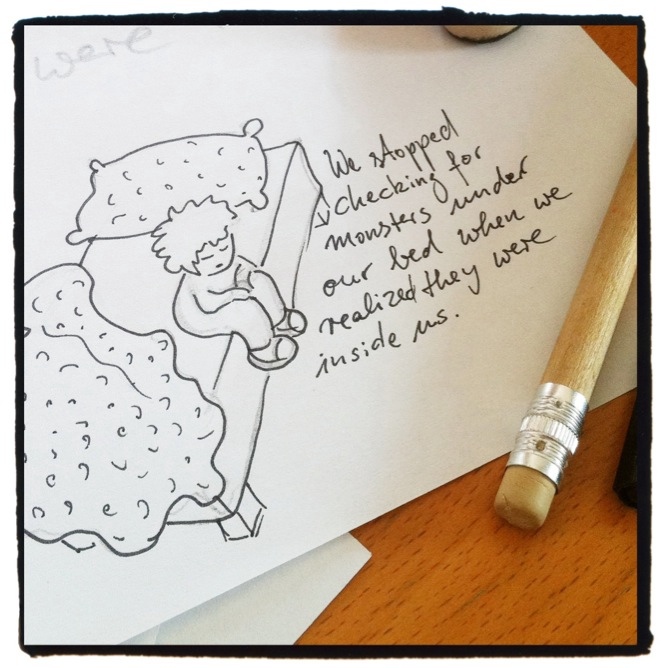 were
We stopped
checking for
monsters under
our bed when we
realized they were
inside us.